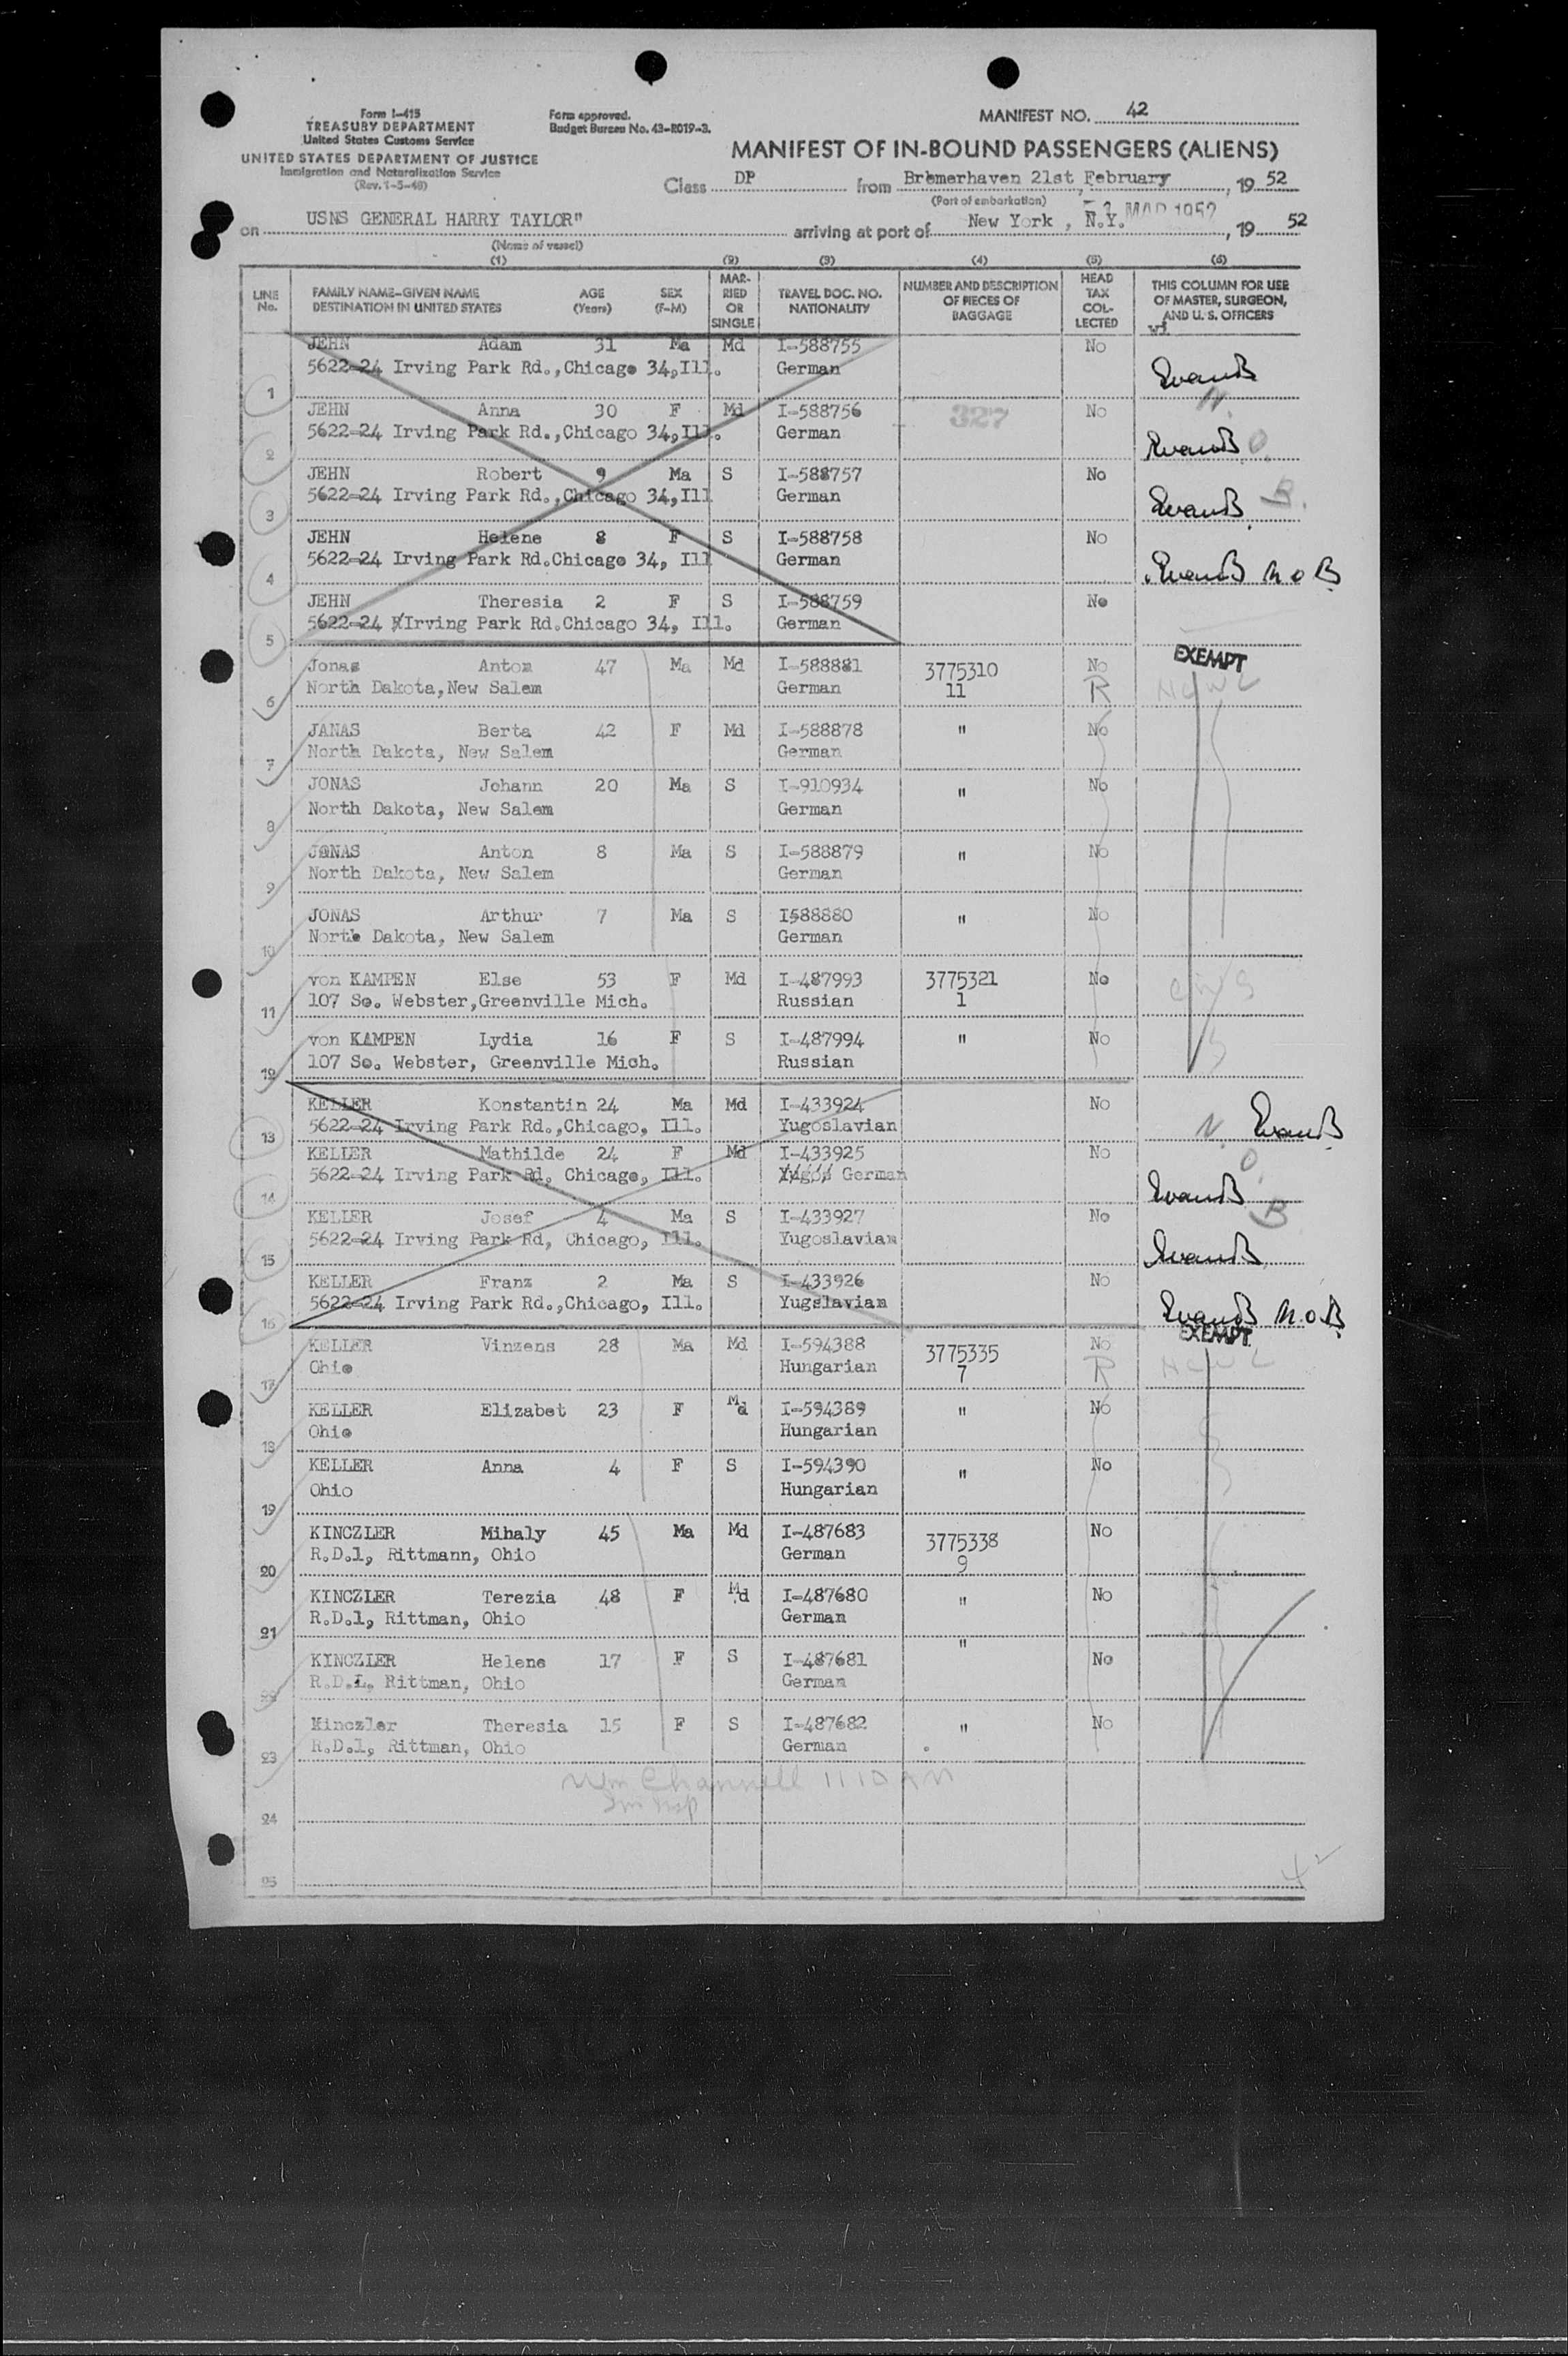 Form I-415
TREASURY DEPARTMENT
United States Customs Service
UNITED STATES DEPARTMENT OF JUSTICE
Immigration and Naturalization Service
(Rev. 1-5-48)
Form approved.
Budget Bureau No. 43-R019-3.
MANIFEST NO. 42
MANIFEST OF IN-BOUND PASSENGERS (ALIENS)
Class DP from Bremerhaven 21st, February, 19 52
(Port of embarkation)
MAR 1952
on USNS GENERAL HARRY TAYLOR" arriving at port of New York, N.Y., 19 52
(Name of vessel)
(1) (2) (3) (4) (5) (6)
LINE No. FAMILY NAME-GIVEN NAME DESTINATION IN UNITED STATES AGE (Years) SEX (F-M) MARRIED OR SINGLE TRAVEL DOC. NO. NATIONALITY NUMBER AND DESCRIPTION OF PIECES OF BAGGAGE HEAD TAX COLLECTED THIS COLUMN FOR USE OF MASTER, SURGEON, AND U. S. OFFICERS
JEHN Adam 31 Ma Md I-588755 No
1 5622-24 Irving Park Rd.,Chicago 34,Ill. German
JEHN Anna 30 F Md I-588756 327 No N.
2 5622-24 Irving Park Rd.,Chicago 34,Ill. German O.
JEHN Robert 9 Ma S I-588757 No
3 5622-24 Irving Park Rd.,Chicago 34,Ill German B.
JEHN Helene 8 F S I-588758 No
4 5622-24 Irving Park Rd.Chicago 34, Ill German N.O.B.
JEHN Theresia 2 F S I-588759 No
5 5622-24 Irving Park Rd.Chicago 34, Ill. German
Jonas Anton 47 Ma Md I-588881 3775310 No EXEMPT
6 North Dakota,New Salem German 11 R
JANAS Berta 42 F Md I-588878 " No
7 North Dakota, New Salem German
JONAS Johann 20 Ma S I-910934 " No
8 North Dakota, New Salem German
JONAS Anton 8 Ma S I-588879 " No
9 North Dakota, New Salem German
JONAS Arthur 7 Ma S I588880 " No
10 North Dakota, New Salem German
von KAMPEN Else 53 F Md I-487993 3775321 No
11 107 So. Webster,Greenville Mich. Russian 1
von KAMPEN Lydia 16 F S I-487994 " No
12 107 So. Webster, Greenville Mich. Russian
KELLER Konstantin 24 Ma Md I-433924 No
13 5622-24 Irving Park Rd.,Chicago, Ill. Yugoslavian N.
KELLER Mathilde 24 F Md I-433925 No O.
14 5622-24 Irving Park Rd, Chicago, Ill. German
KELLER Josef 4 Ma S I-433927 No B
15 5622-24 Irving Park Rd, Chicago, Ill. Yugoslavian
KELLER Franz 2 Ma S I-433926 No
16 5622-24 Irving Park Rd.,Chicago, Ill. Yugslavian N.O.B.
KELLER Vinzens 28 Ma Md I-594388 3775335 No EXEMPT
17 Ohio Hungarian 7 R
KELLER Elizabet 23 F Md I-594389 " No
18 Ohio Hungarian
KELLER Anna 4 F S I-594390 " No
19 Ohio Hungarian
KINCZLER Mihaly 45 Ma Md I-487683 3775338 No
20 R.D.1, Rittmann, Ohio German 9
KINCZLER Terezia 48 F Md I-487680 " No
21 R.D.1, Rittman, Ohio German
KINCZLER Helene 17 F S I-487681 " No
22 R.D.1, Rittman, Ohio German
Kinczler Theresia 15 F S I-487682 " No
23 R.D.1, Rittman, Ohio German
Wm Channell 1110 AM
24 Im Insp
25
42